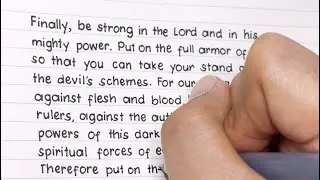 Finally, be strong in the Lord and in his
mighty power. Put on the full armor of
so that you can take your stand
the devil's schemes. For our
against flesh and blood
rulers, against the
powers of this dark
spiritual forces of
Therefore put on